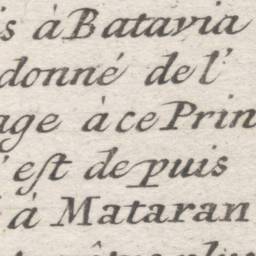 is à Batavia
donné de l'
age à ce Prin
'est depuis
à Mataran